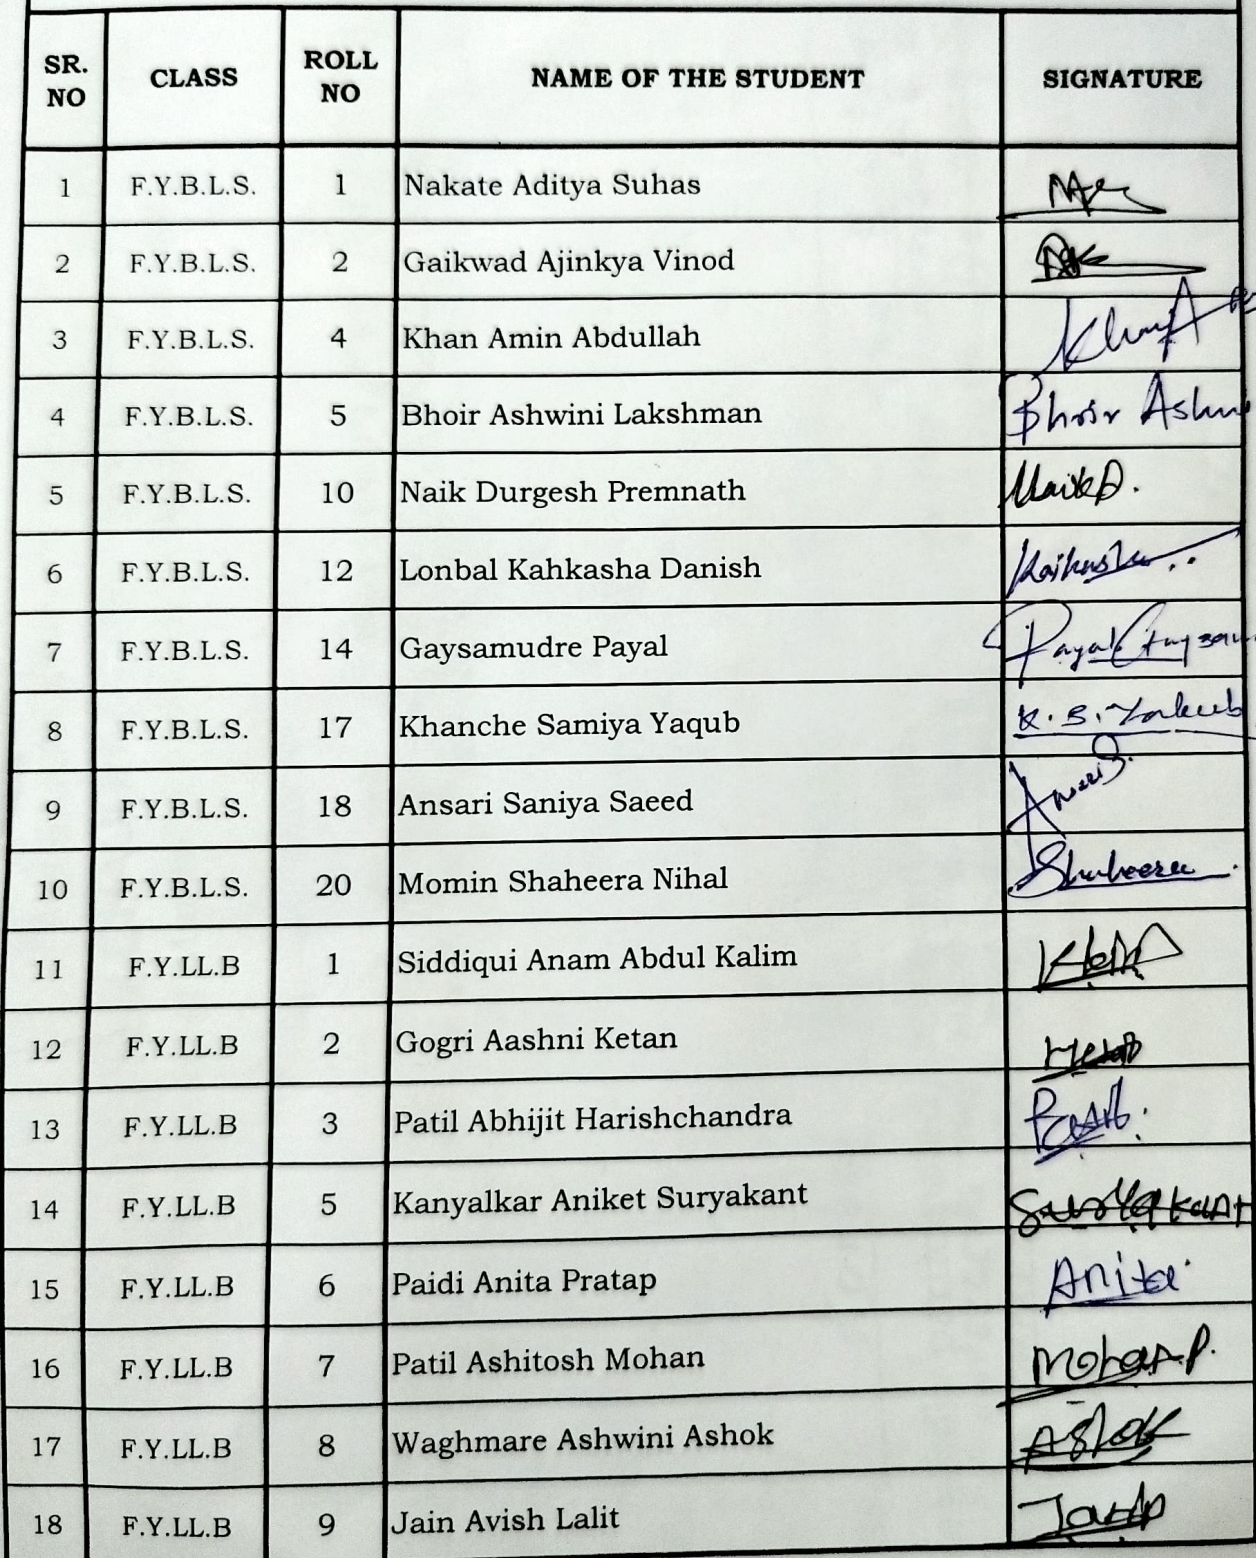 SR. NO CLASS ROLL NO NAME OF THE STUDENT SIGNATURE
1 F.Y.B.L.S. 1 Nakate Aditya Suhas
2 F.Y.B.L.S. 2 Gaikwad Ajinkya Vinod
3 F.Y.B.L.S. 4 Khan Amin Abdullah
4 F.Y.B.L.S. 5 Bhoir Ashwini Lakshman Bhoir
5 F.Y.B.L.S. 10 Naik Durgesh Premnath Naik D.
6 F.Y.B.L.S. 12 Lonbal Kahkasha Danish
7 F.Y.B.L.S. 14 Gaysamudre Payal Payal
8 F.Y.B.L.S. 17 Khanche Samiya Yaqub K. S.
9 F.Y.B.L.S. 18 Ansari Saniya Saeed
10 F.Y.B.L.S. 20 Momin Shaheera Nihal Shaheera
11 F.Y.LL.B 1 Siddiqui Anam Abdul Kalim
12 F.Y.LL.B 2 Gogri Aashni Ketan
13 F.Y.LL.B 3 Patil Abhijit Harishchandra
14 F.Y.LL.B 5 Kanyalkar Aniket Suryakant Suryakant
15 F.Y.LL.B 6 Paidi Anita Pratap Anita
16 F.Y.LL.B 7 Patil Ashitosh Mohan Mohan.P.
17 F.Y.LL.B 8 Waghmare Ashwini Ashok Ashok
18 F.Y.LL.B 9 Jain Avish Lalit